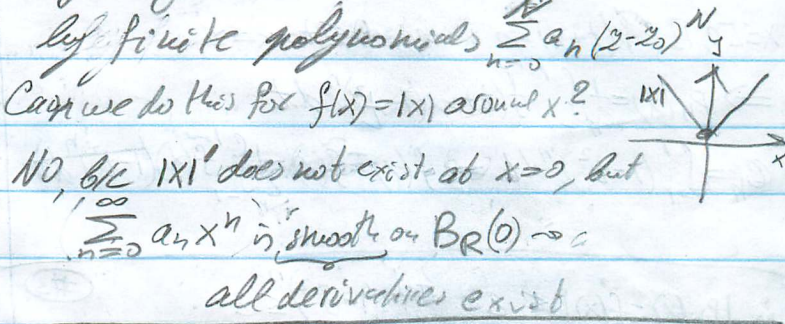 by finite polynomials ∑_{n=0}^{N} a_n (z-z_0)^N
Can we do this for f(x)=|x| around x? |x| y x
No, b/c |x|' does not exist at x=0, but
∑_{n=0}^{∞} a_n x^n is smooth on B_R(0) →
all derivatives exist